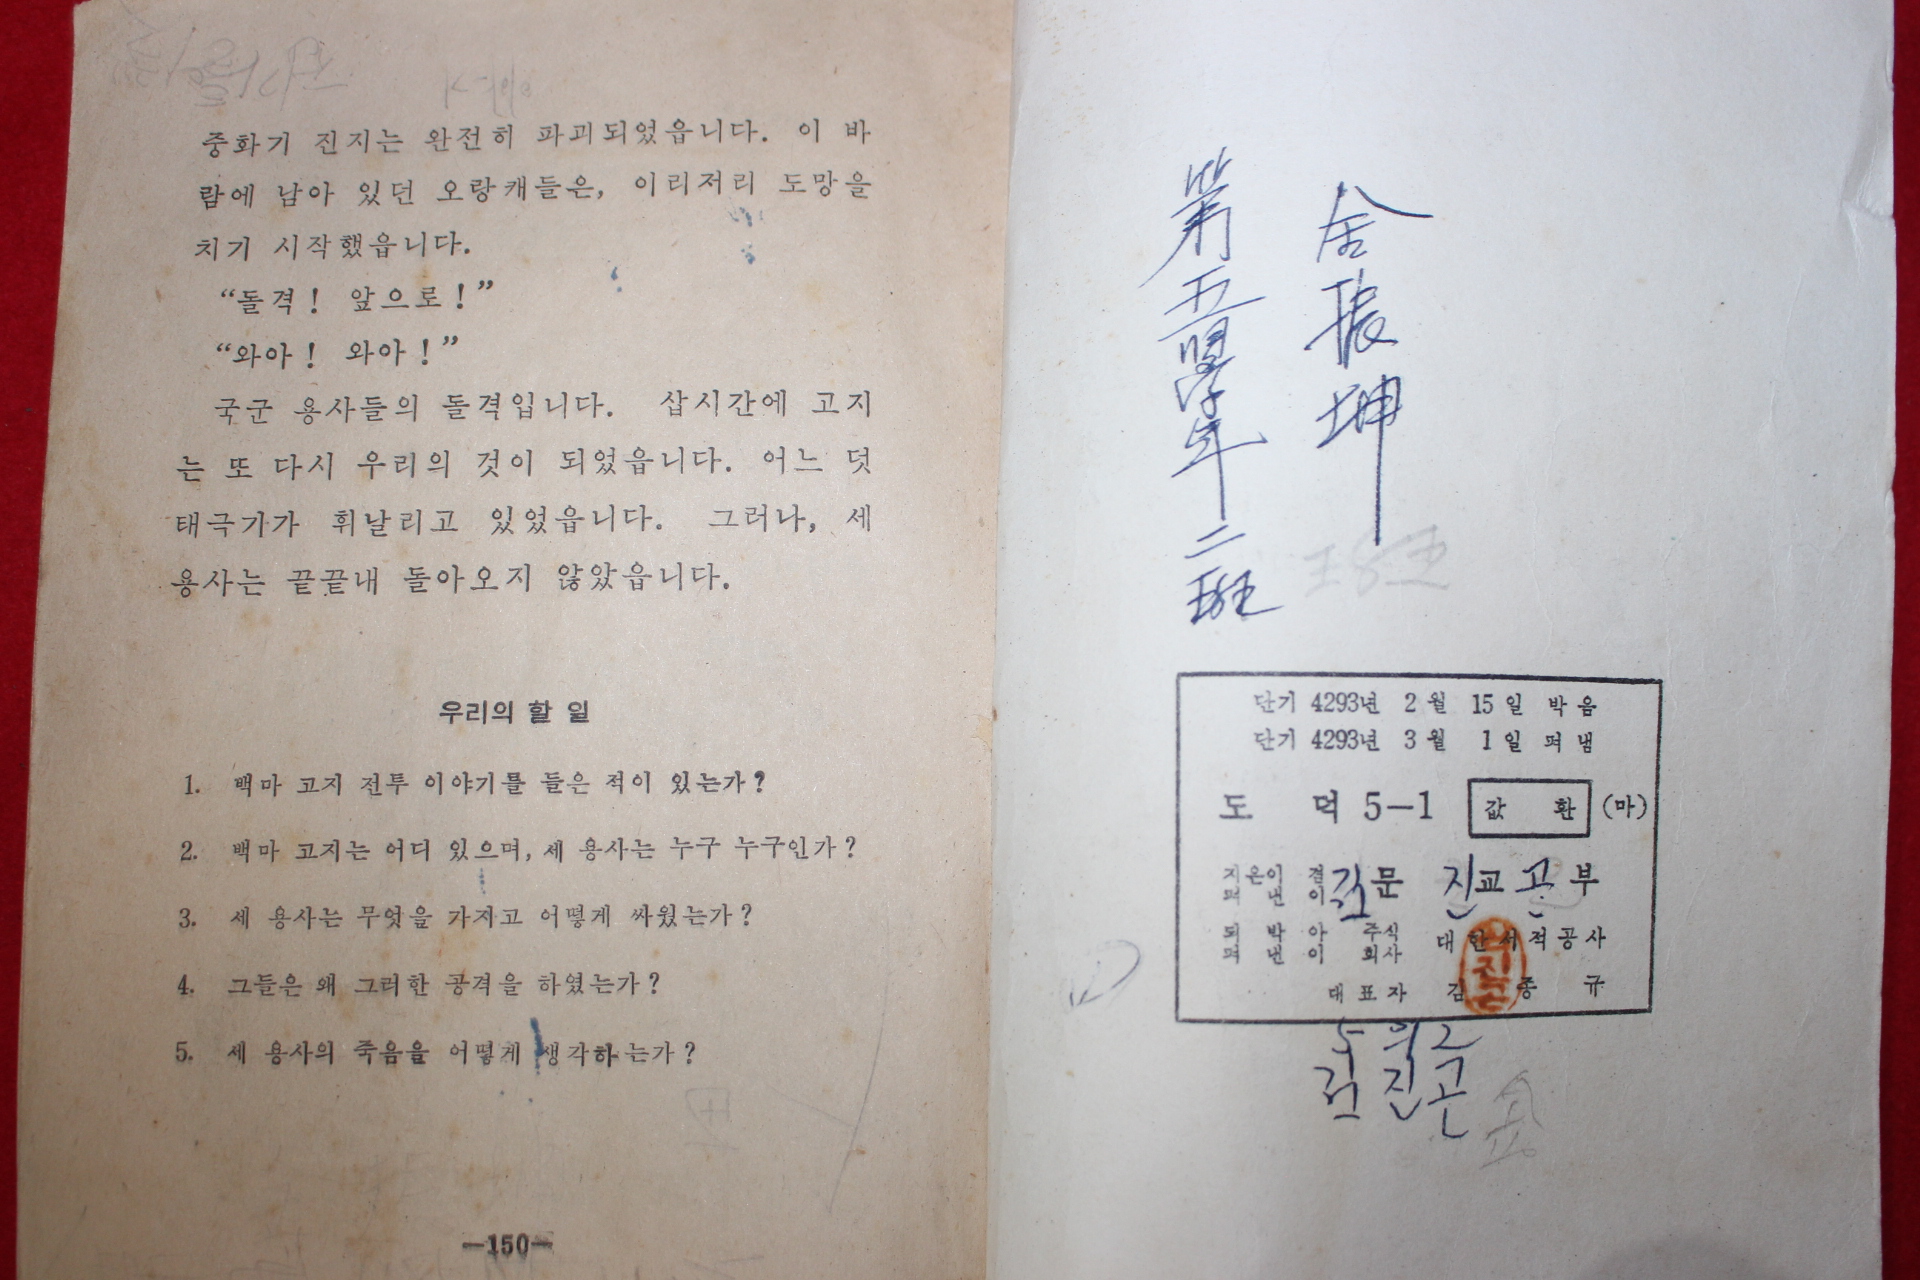 중화기 진지는 완전히 파괴되었읍니다. 이 바
람에 남아 있던 오랑캐들은, 이리저리 도망을
치기 시작했읍니다.
“돌격! 앞으로!”
“와아! 와아!”
국군 용사들의 돌격입니다. 삽시간에 고지
는 또 다시 우리의 것이 되었읍니다. 어느 덧
태극기가 휘날리고 있었읍니다. 그러나, 세
용사는 끝끝내 돌아오지 않았읍니다.
우리의 할 일
1. 백마 고지 전투 이야기를 들은 적이 있는가?
2. 백마 고지는 어디 있으며, 세 용사는 누구 누구인가?
3. 세 용사는 무엇을 가지고 어떻게 싸웠는가?
4. 그들은 왜 그러한 공격을 하였는가?
5. 세 용사의 죽음을 어떻게 생각하는가?
—150—
金振坤
第五學年二班
단기 4293년 2월 15일 박음
단기 4293년 3월 1일 펴냄
도덕 5—1 값 환 (마)
지은이 겸
펴낸이 문교부
김진곤
되박아
펴낸이 주식
회사 대한서적공사
대표자 김종규
5의2
김진곤